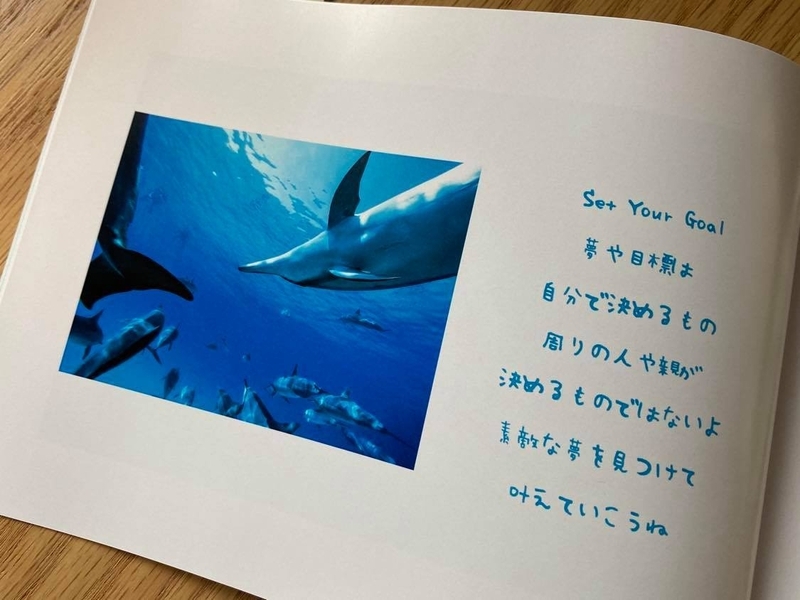 Set Your Goal
夢や目標は
自分で決めるもの
周りの人や親が
決めるものではないよ
素敵な夢を見つけて
叶えていこうね